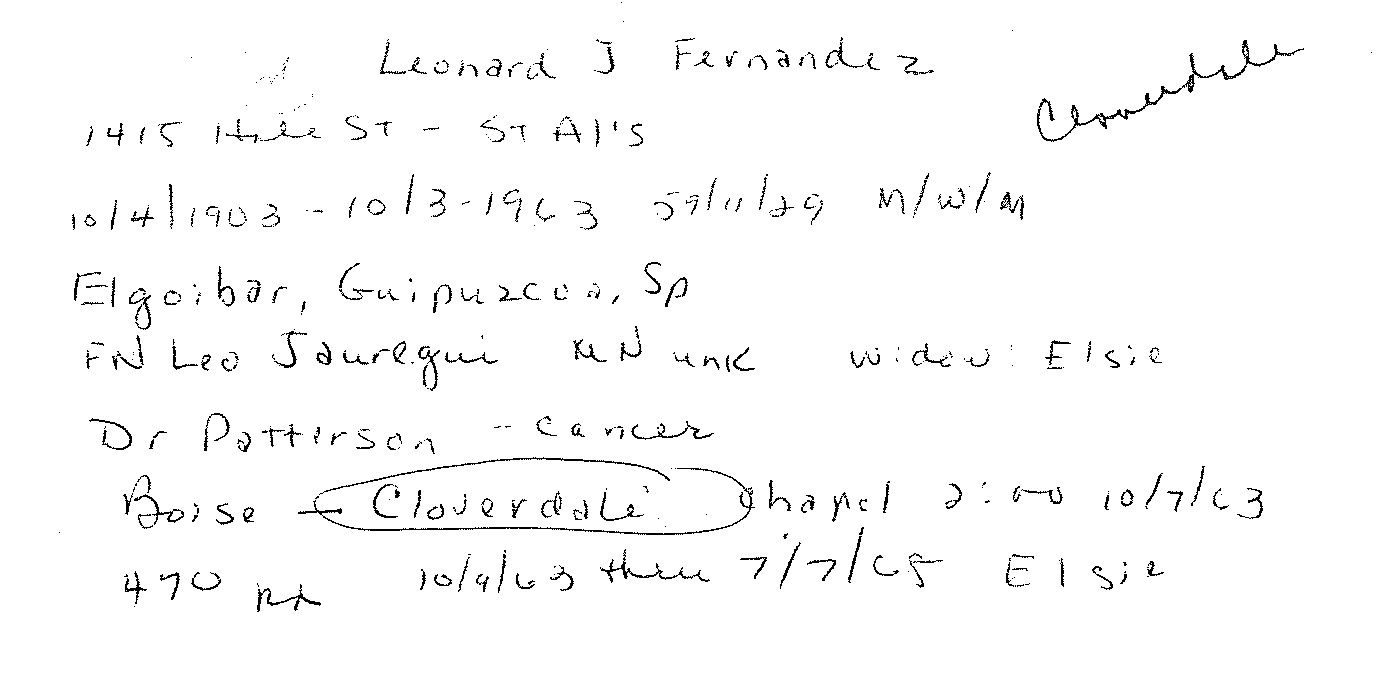 Leonard J Fernandez
Cloverdale
1415 Hale ST - ST Al's
10/4/1903 - 10/3-1963 59/11/29 M/W/M
Elgoibar, Guipuzcoa, Sp
FN Leo Jauregui MN unk widow: Elsie
Dr Patterson - cancer
Boise - Cloverdale Chapel 2:00 10/7/63
470 pd 10/9/63 thru 7/7/65 Elsie